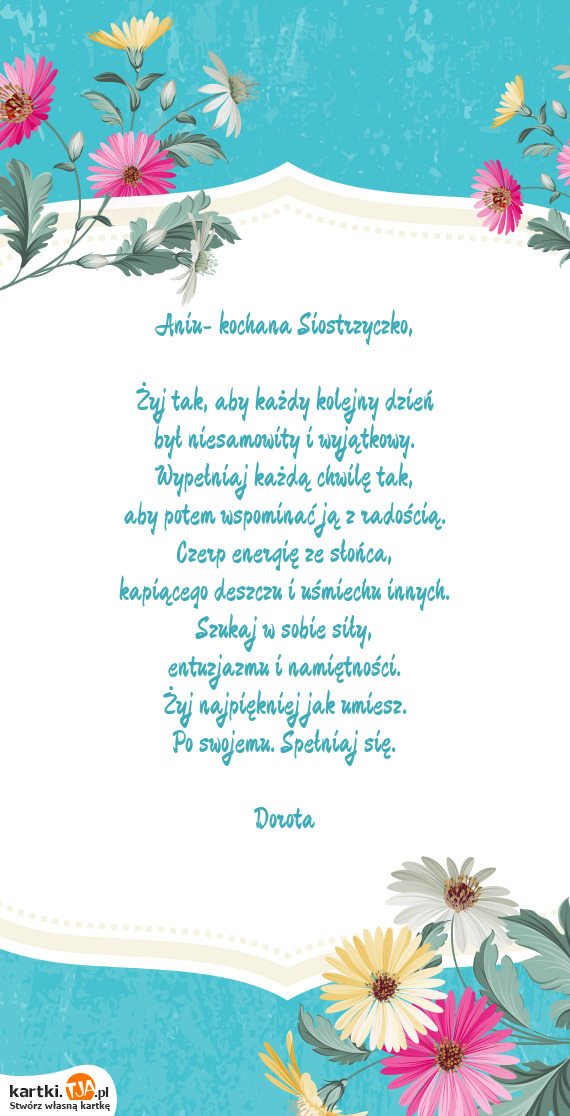 Aniu- kochana Siostrzyczko,
Żyj tak, aby każdy kolejny dzień
był niesamowity i wyjątkowy.
Wypełniaj każdą chwilę tak,
aby potem wspominać ją z radością.
Czerp energię ze słońca,
kapiącego deszczu i uśmiechu innych.
Szukaj w sobie siły,
entuzjazmu i namiętności.
Żyj najpiękniej jak umiesz.
Po swojemu. Spełniaj się.
Dorota
kartki.TJA.pl
Stwórz własną kartkę